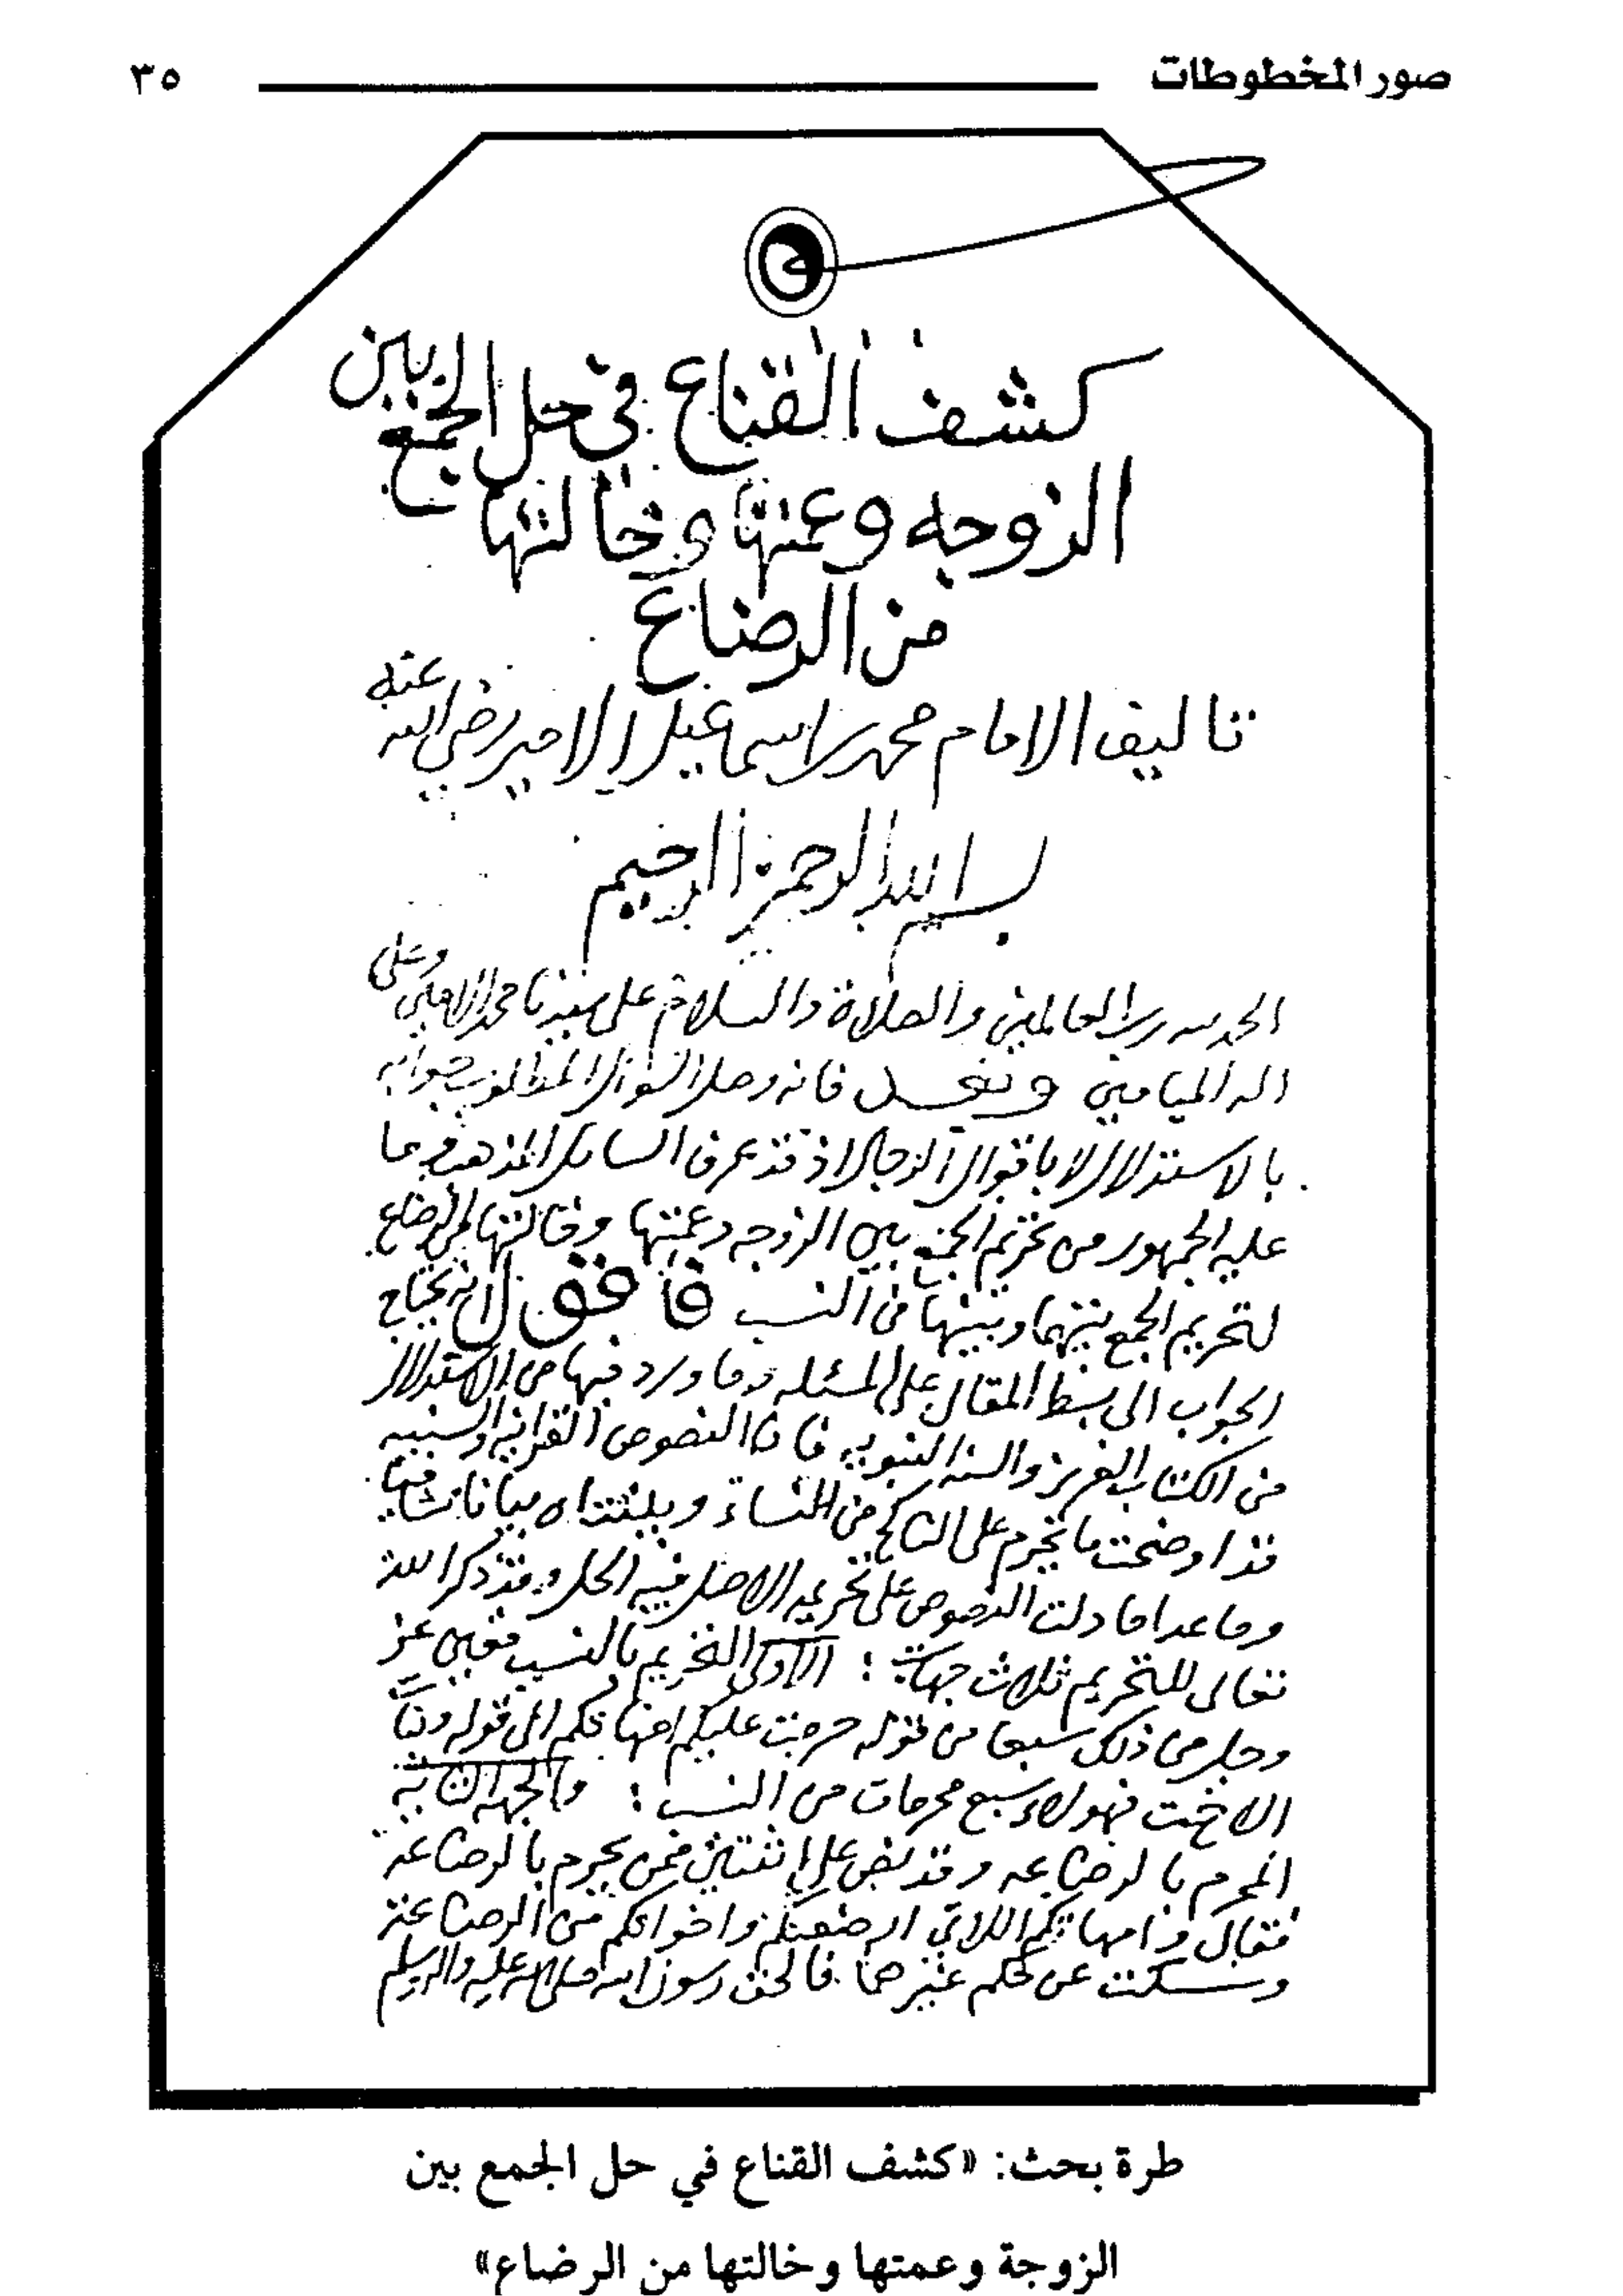 صور المخطوطات ٣٥
كشف القناع في حل الجمع بين
الزوجه وعمتها وخالتها
من الرضاع
تاليف الامام محمد بن اسماعيل الامير رضي الله عنه
بسم الله الرحمن الرحيم
الحمد لله رب العالمين والصلاة والسلام على سيدنا محمد الامين وعلى
اله الميامين وبعد فانه وصل السؤال المطلوب جوابه
بالاستدلال لا باقوال الرجال اذ قد عرف السايل المذهب وما
عليه الجمهور من تحريم الجمع بين الزوجه وعمتها وخالتها من الرضاع
لتحريم الجمع بينهما وبينها من النسب فاقول انه يحتاج
الجواب الى بسط المقال على المسئله وما ورد فيها من الاستدلال
من الكتاب العزيز والسنه النبويه فان النصوص القرانيه والسنيه
قد اوضحت ما يحرم على الناكح من النساء وبينته بيانا شافيا
وما عدا ما دلت النصوص على تحريمه الاصل فيه الحل وقد ذكر الله
تعالى للتحريم ثلاث جهات : الاولى التحريم بالنسب فعين عز
وجل من ذلك سبعا من قوله حرمت عليكم امهاتكم الى قوله وبنات
الاخت فهولاء سبع محرمات من النسب : والجهه الثانيه
المحرم بالرضاعه وقد نص على اثنتين ممن يحرم بالرضاعه
فقال وامهاتكم اللاتي ارضعنكم واخواتكم من الرضاعة
وسكت عن حكم غيرهما فالحق رسول الله صلى الله عليه واله وسلم
طرة بحث: «كشف القناع في حل الجمع بين
الزوجة وعمتها وخالتها من الرضاع»